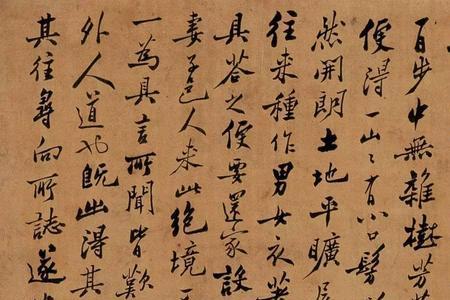 百步中無雜樹芳
便得一山〻有小口髣
然開朗土地平曠屋
往来種作男女衣著
具荅之便要還家設
妻子邑人来此絶境
一為具言所聞皆歎
外人道也既出得其
其往尋向所誌遂